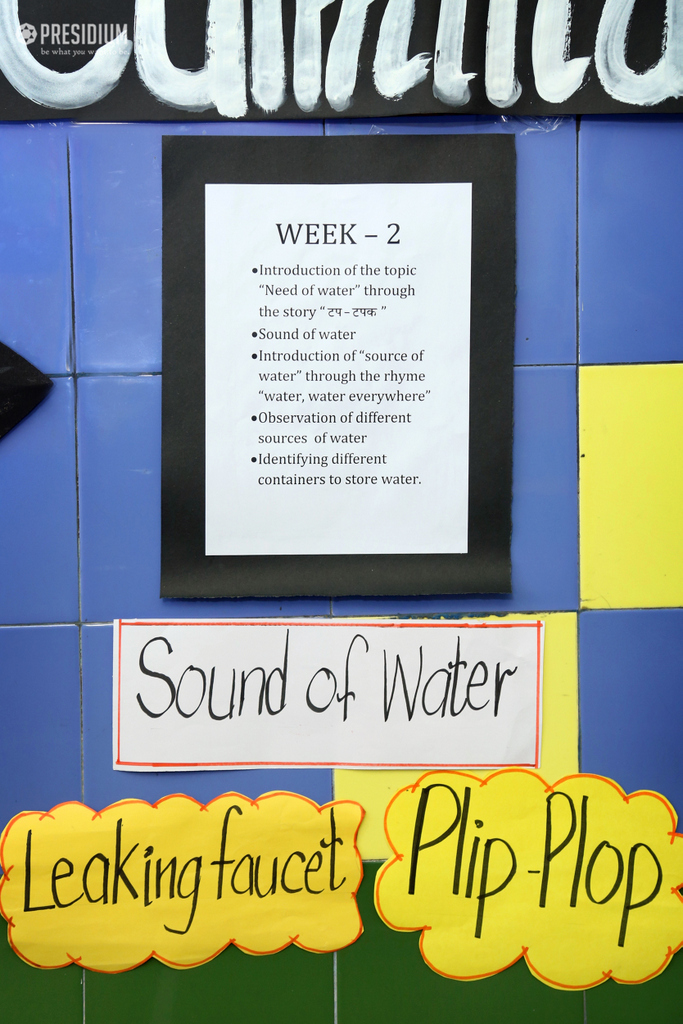 PRESIDIUM
WEEK – 2
•Introduction of the topic
“Need of water” through
the story “ टप – टपक ”
•Sound of water
•Introduction of “source of
water” through the rhyme
“water, water everywhere”
•Observation of different
sources  of water
•Identifying different
containers to store water.
Sound of Water
Leaking faucet
Plip-Plop